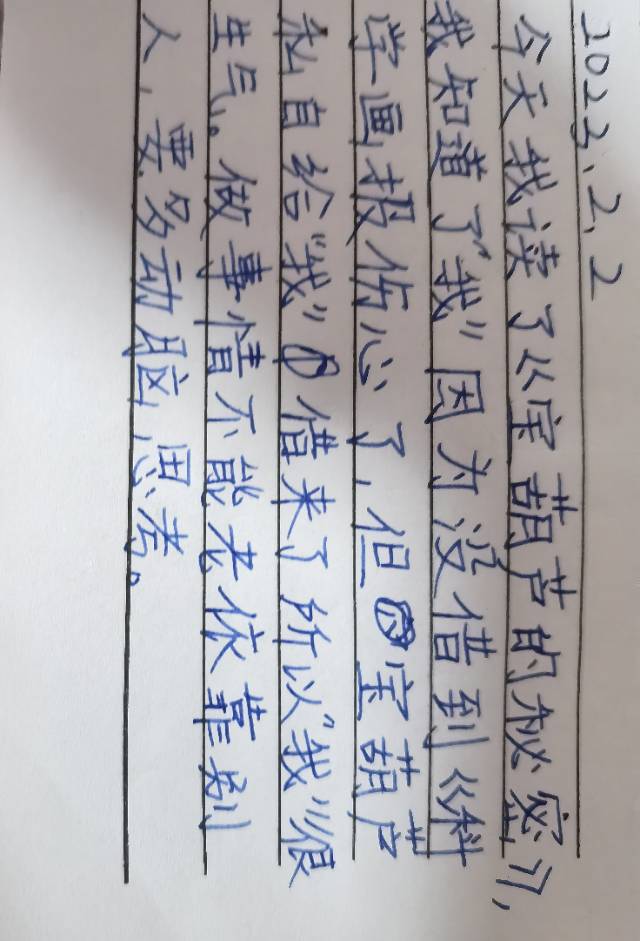 2023.2.2
今天我读了《宝葫芦的秘密》,
我知道了"我"因为没借到《科
学画报伤心了,但宝葫芦
私自给"我"借来了所以"我"很
生气。做事情不能老依靠别
人,要多动脑思考。